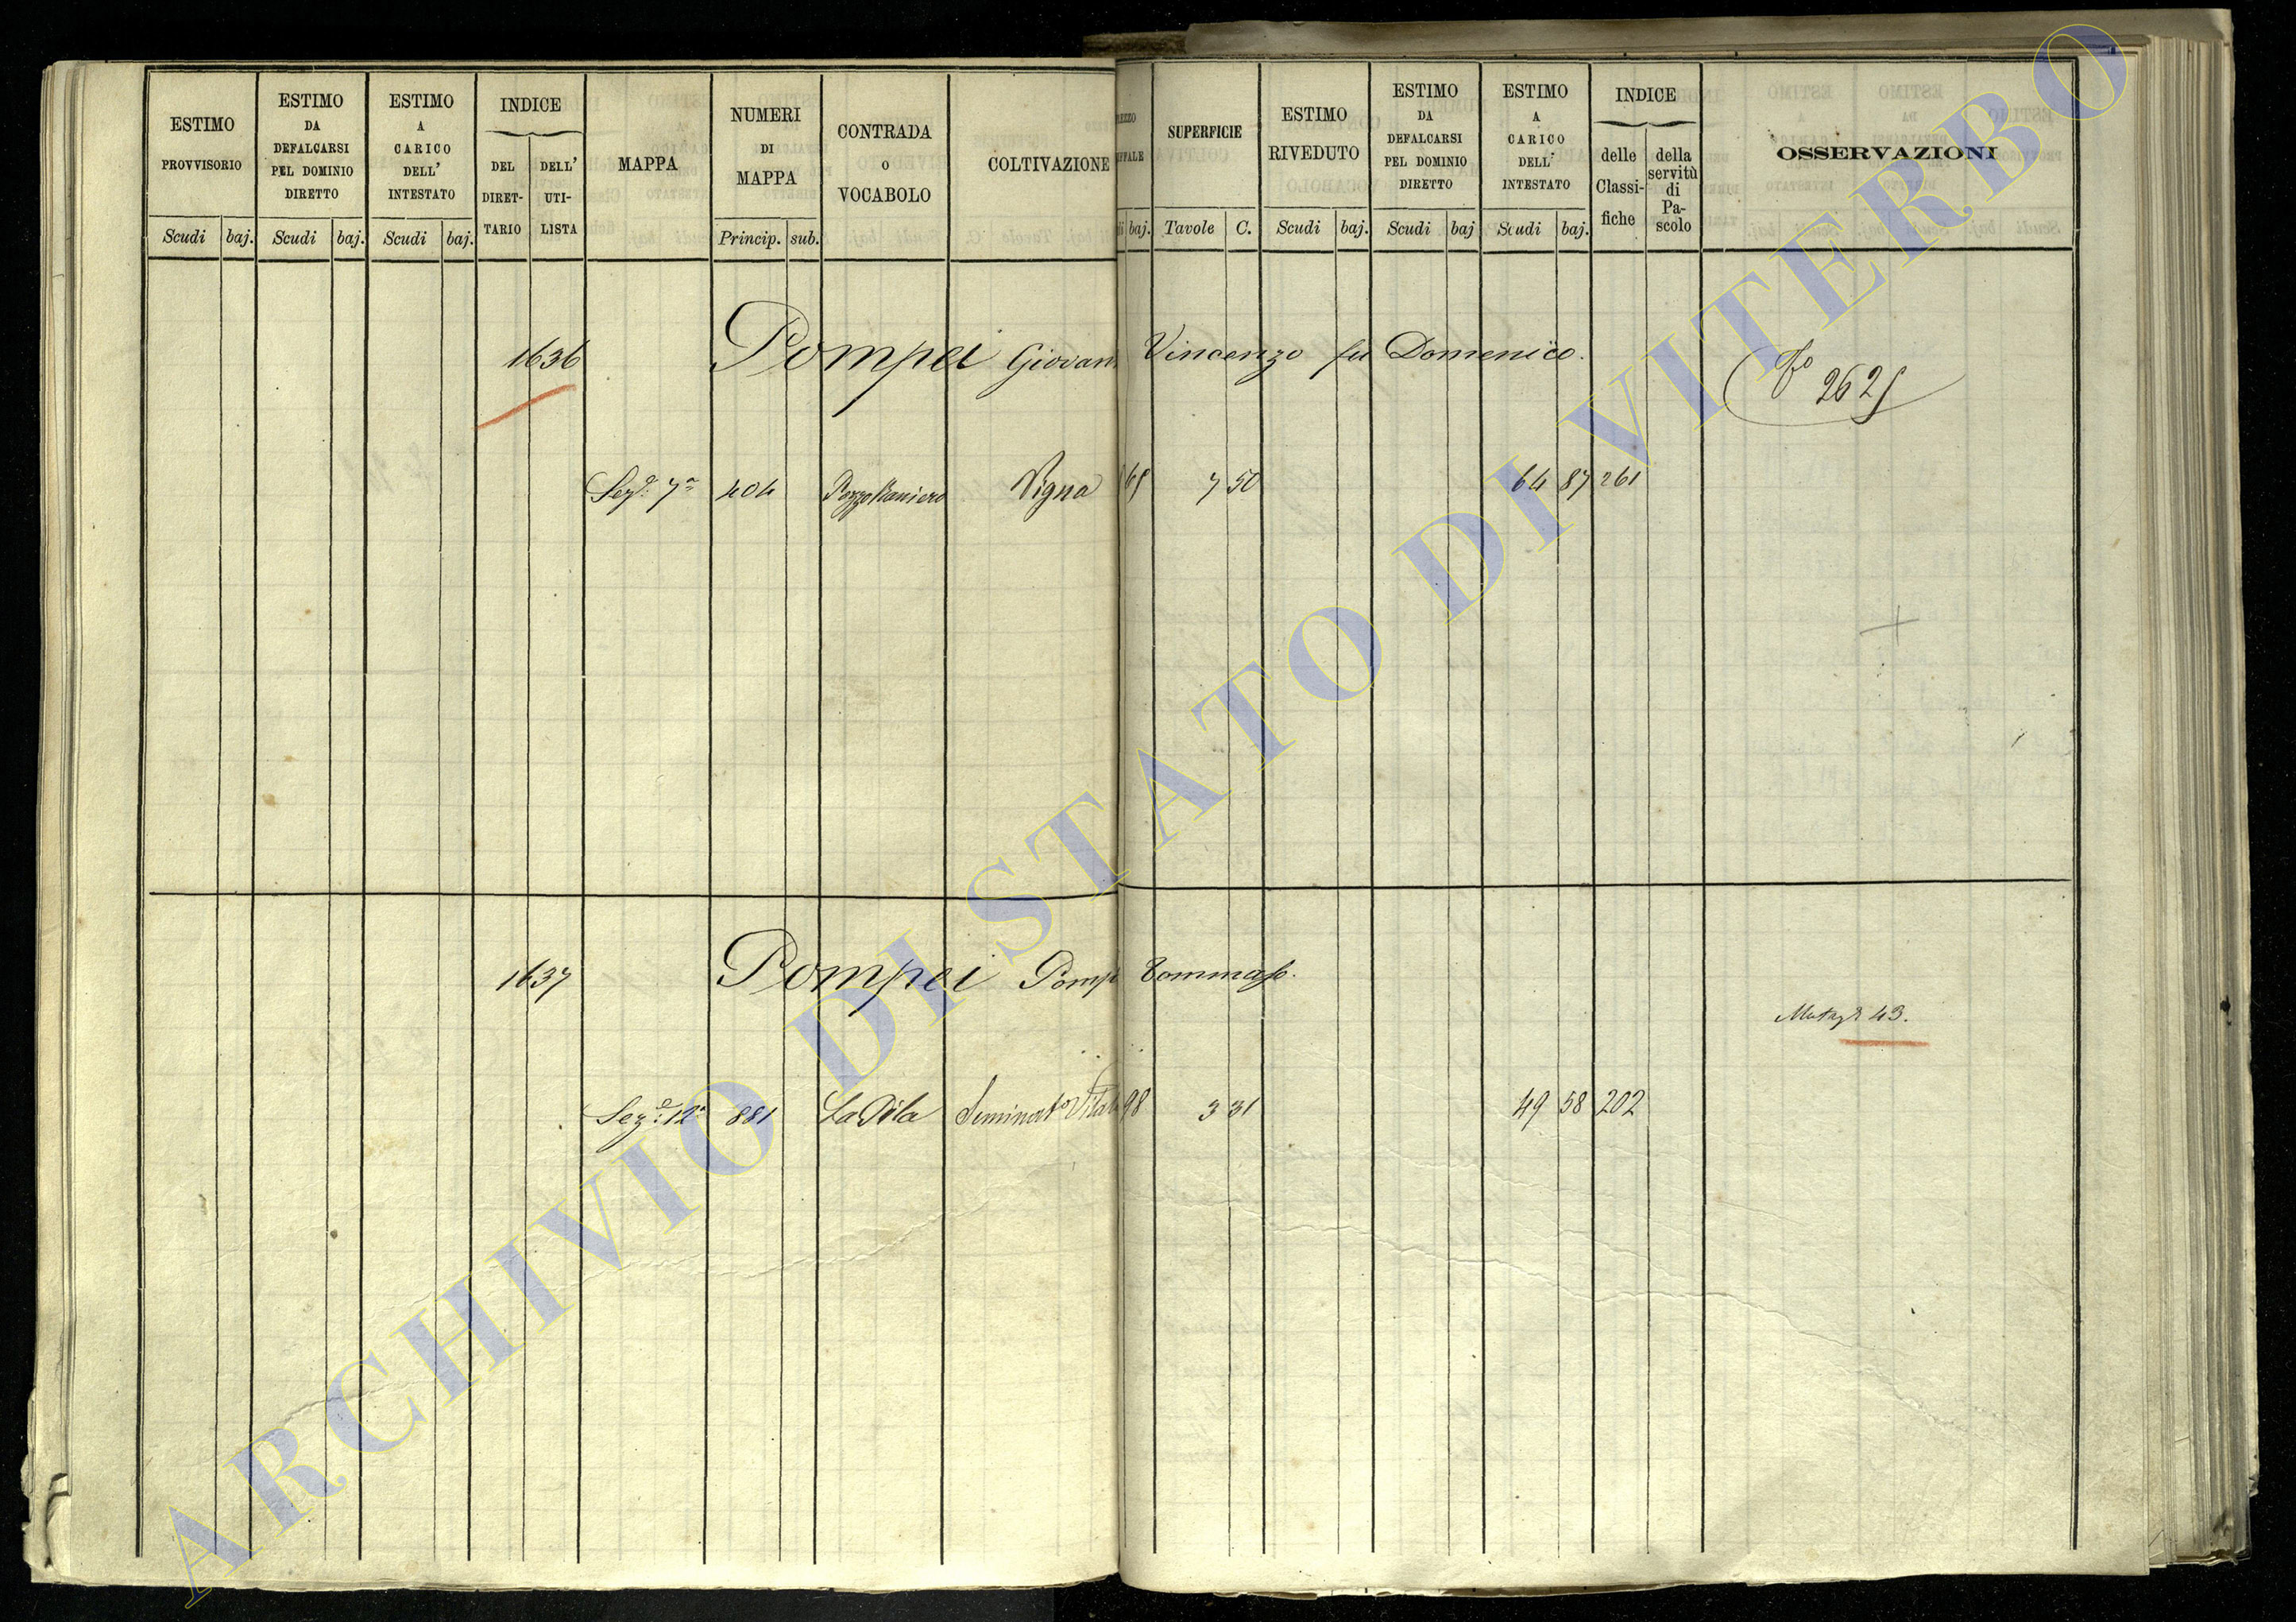 ESTIMO PROVVISORIO Scudi baj.
ESTIMO DA DEFALCARSI PEL DOMINIO DIRETTO Scudi baj.
ESTIMO A CARICO DELL' INTESTATO Scudi baj.
INDICE DEL DIRET-TARIO DELL' UTI-LISTA
MAPPA
NUMERI DI MAPPA Princip. sub.
CONTRADA O VOCABOLO
COLTIVAZIONE
baj.
SUPERFICIE Tavole C.
ESTIMO RIVEDUTO Scudi baj.
ESTIMO DA DEFALCARSI PEL DOMINIO DIRETTO Scudi baj
ESTIMO A CARICO DELL' INTESTATO Scudi baj.
INDICE delle Classi-fiche della servitù di Pa-scolo
OSSERVAZIONI
1636 Pompei Giovan Vincenzo fu Domenico.
2625
Sez.e 7a 404 Pozzo Raniero Vigna 7 50 64 87 261
1637 Pompei Pomp Tommaso.
43.
Sez.e 12a 881 La Pila Seminato Vitato 98 3 31 49 58 202
ARCHIVIO DI STATO DI VITERBO